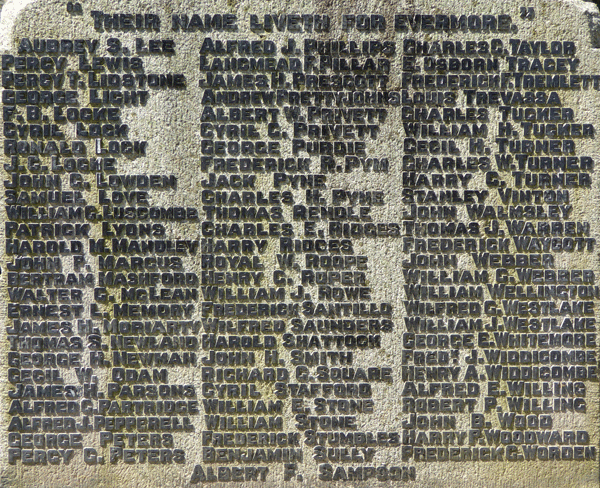 "THEIR NAME LIVETH FOR EVERMORE."
AUBREY S. LEE
PERCY LEWIS
PERCY T. LIDSTONE
GEORGE LIGHT
F. B. LOCKE
CYRIL LOCK
RONALD LOCK
J. C. LOCKE
JOHN C. LOWDEN
SAMUEL LOVE
WILLIAM G. LUSCOMBE
PATRICK LYONS
HAROLD W. MANDLEY
JOHN P. MARCUS
BERTRAM MASHFORD
WALTER G. MCLEAN
ERNEST L. MEMORY
JAMES H. MORIARTY
THOMAS S. NEWLAND
GEORGE R. NEWMAN
CECIL W. ODAM
JAMES H. PARSONS
ALFRED G. PARTRIDGE
ALFRED J. PEPPERELL
GEORGE PETERS
PERCY G. PETERS
ALFRED J. PHILLIPS
LANGMEAD F. PILLAR
JAMES H. PRESCOTT
ANDREW PRETTYJOHNS
ALBERT W. PRIVETT
CYRIL C. PRIVETT
GEORGE PURDIE
FREDERICK R. PYM
JACK PYNE
CHARLES H. PYNE
THOMAS RENDLE
CHARLES E. RIDGES
HARRY RIDGES
ROYAL W. ROOPE
HENRY C. ROPER
WILLIAM J. ROWE
FREDERICK SANTILLO
WILFRED SAUNDERS
HAROLD SHATTOCK
JOHN H. SMITH
RICHARD G. SQUARE
CYRIL STAFFORD
WILLIAM E. STONE
WILLIAM STONE
FREDERICK STUMBLES
BENJAMIN SULLY
CHARLES C. TAYLOR
E. OSBORN TRACEY
FREDERICK F. TREMLETT
LOUIS TREVASSA
CHARLES TUCKER
WILLIAM H. TUCKER
CECIL H. TURNER
CHARLES W. TURNER
HARRY C. TURNER
STANLEY VINTON
JOHN WALMSLEY
THOMAS J. WARREN
FREDERICK WAYCOTT
JOHN WEBBER
WILLIAM G. WEBBER
WILLIAM WELLINGTON
WILFRED G. WESTLAKE
WILLIAM J. WESTLAKE
GEORGE E. WHITEMORE
FREDK J. WIDDICOMBE
HENRY A. WIDDICOMBE
ALFRED P. WILLING
ROBERT P. WILLING
JOHN B. WOOD
HARRY F. WOODWARD
FREDERICK G. WORDEN
ALBERT F. SAMPSON